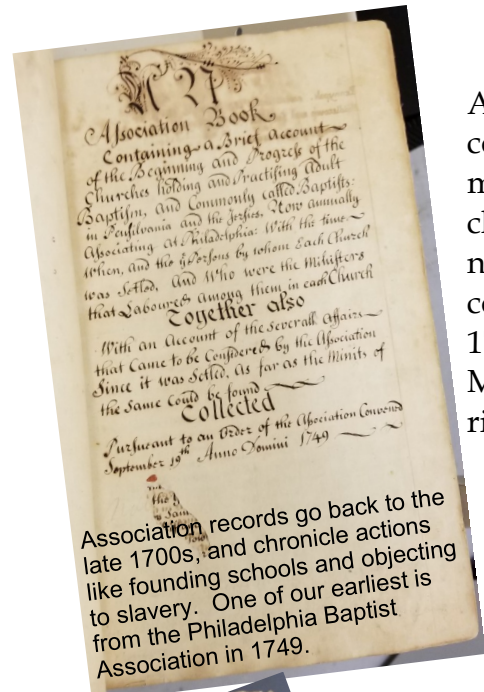 Association Book
Containing a Brief Account
of the Beginning and Progress of the
Churches holding and Practising Adult
Baptism, and Commonly called Baptists:
in Pensilvania and the Jersies, Now annually
Associating At Philadelphia: With the time
When, and the Persons by whom Each Church
was Setled, And Who were the Ministers
that Laboured Among them, in each Church
Together also
With an Account of the Severall Affairs
that Came to be Considered by the Association
Since it was Setled, As far as the Minits of
the Same Could be found
Collected
Pursueant to an Order of the Association Convened
September 19th Anno Domini 1749
the
Association records go back to the
late 1700s, and chronicle actions
like founding schools and objecting
to slavery. One of our earliest is
from the Philadelphia Baptist
Association in 1749.
A
c
m
cl
n
c
1
M
ri